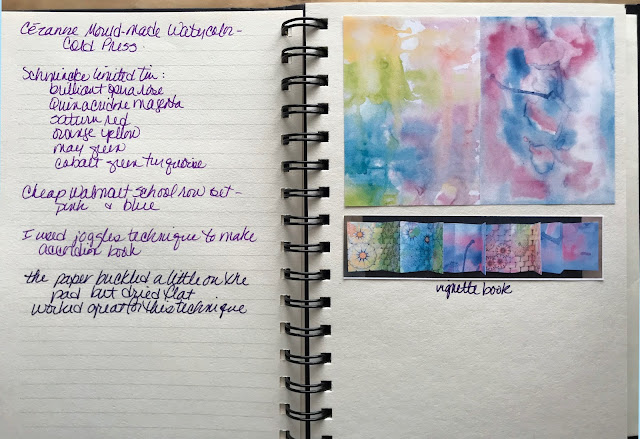 Cézanne Mould-made Watycolor-
Cold Press.
Schmincke limited tin:
brilliant opera rose
Quinacridone magenta
saturn red
orange yellow
may green
cobalt green turquoise
Cheap Walmart school row set-
pink & blue
I used joggles technique to make
accordion book
the paper buckled a little on the
pad but dried flat
worked great for this technique
vignette book